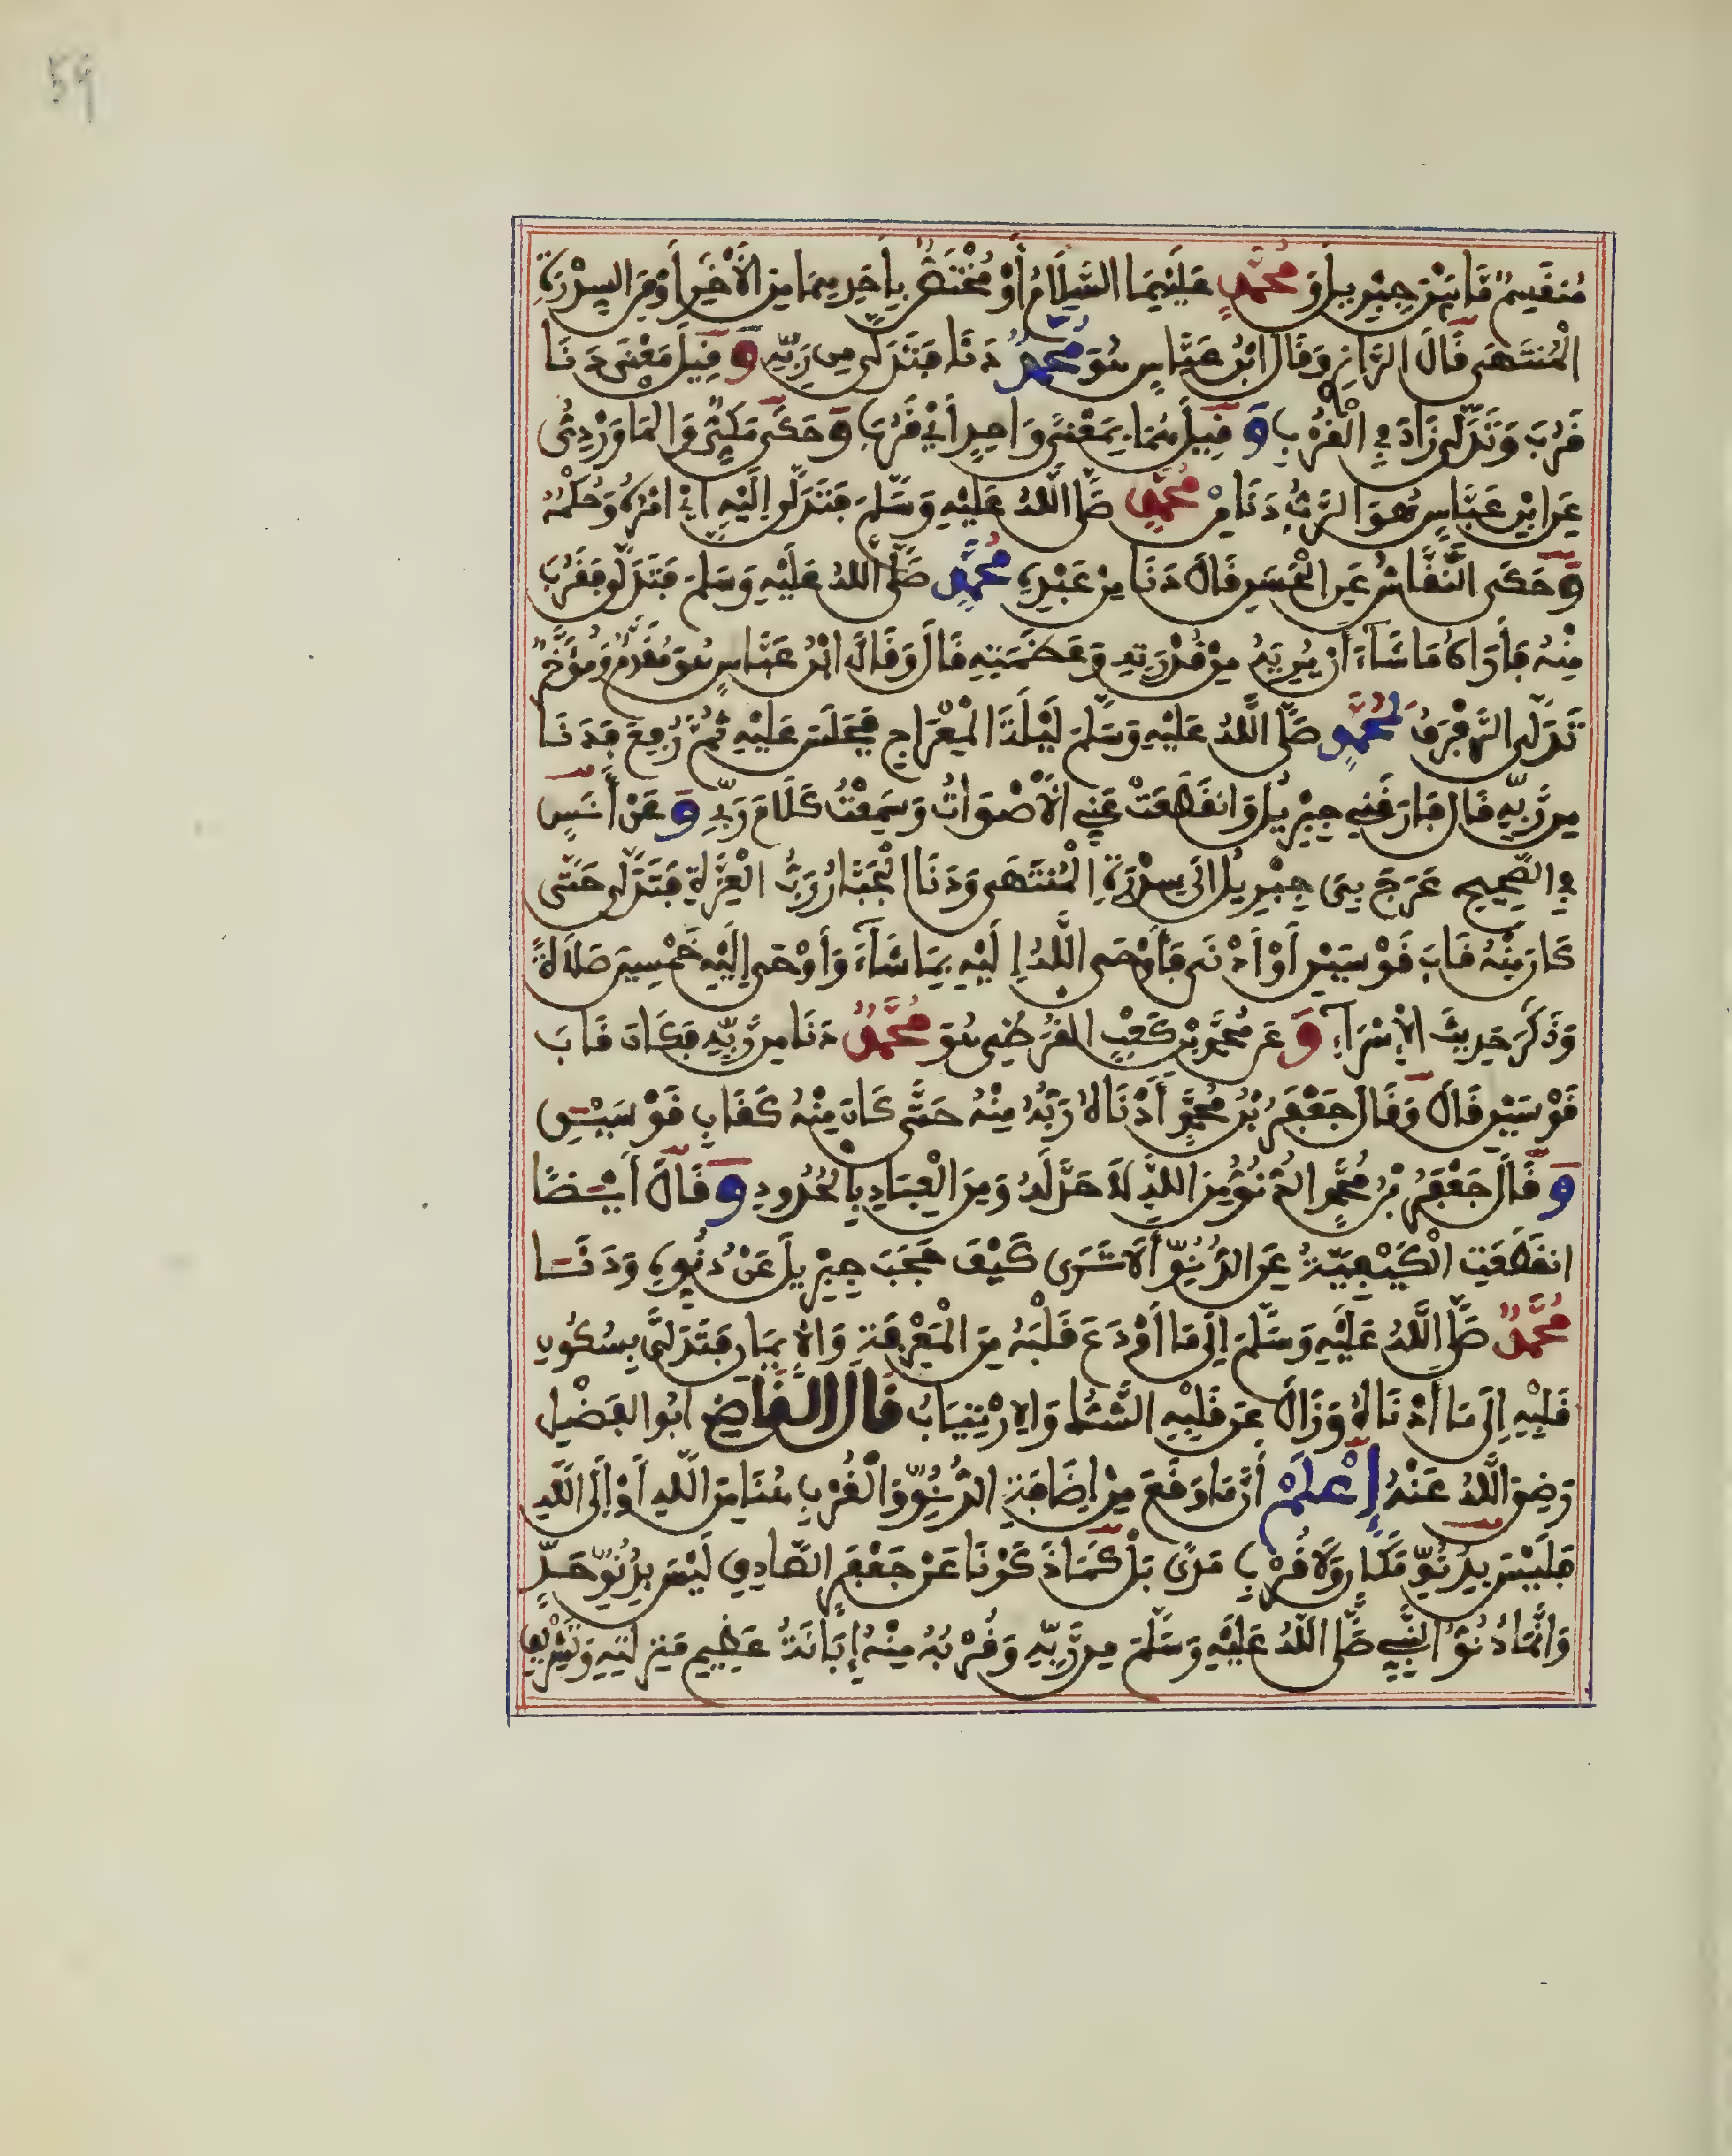 59
مُنقَسِمٌ مَّا بَيْنَ جِبْرِيلَ وَمُحَمَّدٍ عَلَيْهِمَا السَّلَامُ أَوْ مُخْتَصٌّ بِأَحَدِهِمَا مِنَ الْأَخَرِ أَوْ مِنَ السِّدْرَةِ
الْمُنتَهَى قَالَ الرَّازِي وَقَالَ ابْنُ عَبَّاسٍ هُوَ مُحَمَّدٌ دَنَا فَتَدَلَّى مِن رَّبِّهِ وَقِيلَ مَعْنَى دَنَا
قَرُبَ وَتَدَلَّى زَادَ فِي الْقُرْبِ وَقِيلَ هُمَا بِمَعْنًى وَاحِدٍ أَيْ قَرُبَ وَحَكَى مَكِّيٌّ وَالْمَاوَرْدِيُّ
عَنِ ابْنِ عَبَّاسٍ هُوَ الرَّبُّ دَنَا مِنْ مُحَمَّدٍ صَلَّى اللَّهُ عَلَيْهِ وَسَلَّمَ فَتَدَلَّى إِلَيْهِ أَيْ أَمْرُهُ وَحُكْمُهُ
وَحَكَى النَّقَّاشُ عَنِ الْحَسَنِ قَالَ دَنَا مِنْ عَبْدِهِ مُحَمَّدٍ صَلَّى اللَّهُ عَلَيْهِ وَسَلَّمَ فَتَدَلَّى فَقَرُبَ
مِنْهُ فَأَرَاهُ مَا شَاءَ أَنْ يُرِيَهُ مِنْ قُدْرَتِهِ وَعَظَمَتِهِ قَالَ وَقَالَ ابْنُ عَبَّاسٍ هُوَ مُقَدَّمٌ وَمُؤَخَّرٌ
تَدَلَّى الرَّفْرَفُ لِمُحَمَّدٍ صَلَّى اللَّهُ عَلَيْهِ وَسَلَّمَ لَيْلَةَ الْمِعْرَاجِ فَجَلَسَ عَلَيْهِ ثُمَّ رُفِعَ فَدَنَا
مِن رَّبِّهِ قَالَ فَارَقَنِي جِبْرِيلُ وَانقَطَعَتْ عَنِّي الْأَصْوَاتُ وَسَمِعْتُ كَلَامَ رَبِّي وَعَنْ أَنَسٍ
فِي الصَّحِيحِ عَرَجَ بِي جِبْرِيلُ إِلَى سِدْرَةِ الْمُنْتَهَى وَدَنَا الْجَبَّارُ رَبُّ الْعِزَّةِ فَتَدَلَّى حَتَّى
كَانَ مِنْهُ قَابَ قَوْسَيْنِ أَوْ أَدْنَى فَأَوْحَى اللَّهُ إِلَيْهِ بِمَا شَاءَ وَأَوْحَى إِلَيْهِ خَمْسِينَ صَلَاةً
وَذَكَرَ حَدِيثَ الْإِسْرَاءِ وَعَن مُحَمَّدِ بْنِ كَعْبٍ الْقُرَظِي هُوَ مُحَمَّدٌ دَنَا مِن رَّبِّهِ فَكَانَ قَابَ
قَوْسَيْنِ قَالَ وَقَالَ جَعْفَرُ بْنُ مُحَمَّدٍ أَدْنَاهُ رَبُّهُ مِنْهُ حَتَّى كَانَ مِنْهُ كَقَابِ قَوْسَيْنِ
وَقَالَ جَعْفَرُ بْنُ مُحَمَّدٍ الدُّنُوُّ مِنَ اللَّهِ لَا حَدَّ لَهُ وَمِنَ الْعِبَادِ بِالْحُدُودِ وَقَالَ أَيْضًا
انقَطَعَتِ الْكَيْفِيَّةُ عَنِ الدُّنُوِّ أَلَا تَرَى كَيْفَ حَجَبَ جِبْرِيلَ عَنْ دُنُوِّهِ وَدَنَا
مُحَمَّدٌ صَلَّى اللَّهُ عَلَيْهِ وَسَلَّمَ إِلَى مَا أَوْدَعَ قَلْبَهُ مِنَ الْمَعْرِفَةِ وَالْإِيمَانِ فَتَدَلَّى بِسُكُونِ
قَلْبِهِ إِلَى مَا أَدْنَاهُ وَزَالَ عَن قَلْبِهِ الشَّكُّ وَالِارْتِيَابُ قَالَ الْقَاضِي أَبُو الْفَضْلِ
رَضِيَ اللَّهُ عَنْهُ إِعْلَمْ أَنَّ مَا وَقَعَ مِنْ إِضَافَةِ الدُّنُوِّ وَالْقُرْبِ هُنَا مِنَ اللَّهِ أَوْ إِلَى اللَّهِ
فَلَيْسَ بِدُنُوِّ مَكَانٍ وَلَا قُرْبِ مَدًى بَلْ كَمَا ذَكَرْنَا عَنْ جَعْفَرٍ الصَّادِقِ لَيْسَ بِدُنُوِّ حَدٍّ
وَإِنَّمَا دُنُوُّ النَّبِيِّ صَلَّى اللَّهُ عَلَيْهِ وَسَلَّمَ مِن رَّبِّهِ وَقُرْبُهُ مِنْهُ إِبَانَةُ عَظِيمِ مَنْزِلَتِهِ وَتَشْرِيفِ